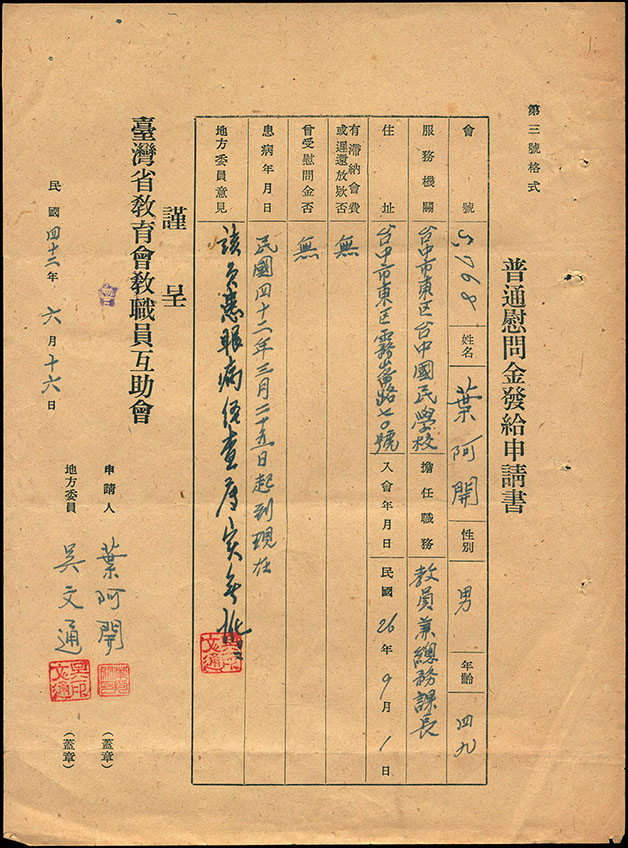 第三號格式
普通慰問金發給申請書
會號 5768 姓名 葉阿開 性別 男 年齡 四九
服務機關 台中市東區台中國民學校 擔任職務 教員兼總務課長
住址 台中市東區霧峯路七〇號 入會年月日 民國26年9月1日
有滯納會費或遲還放欵否 無
曾受慰問金否 無
患病年月日 民國四十二年三月二十五日起到現在
地方委員意見 該員患眼病經查屬實無訛
謹呈
臺灣省敎育會敎職員互助會
民國四十二年六月十六日
申請人 葉阿開 (蓋章)
地方委員 吳文通 (蓋章)